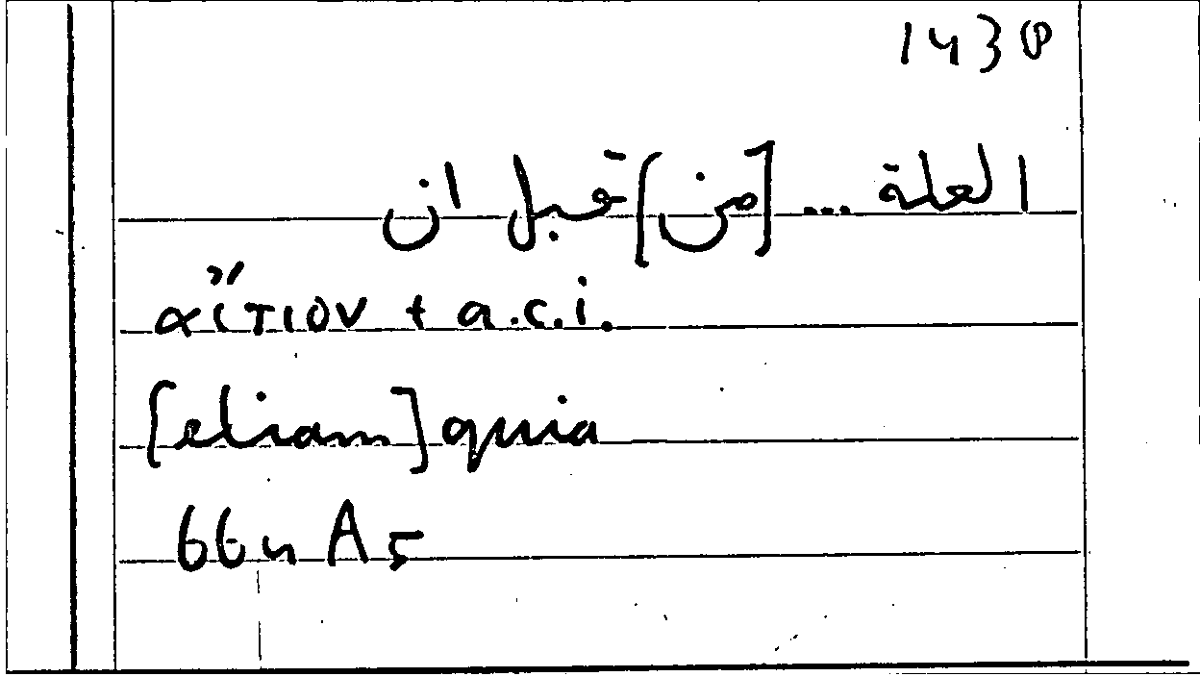 العلة ... [من] قبل ان
αἴτιον + a.c.i.
[etiam] quia
664 A 5